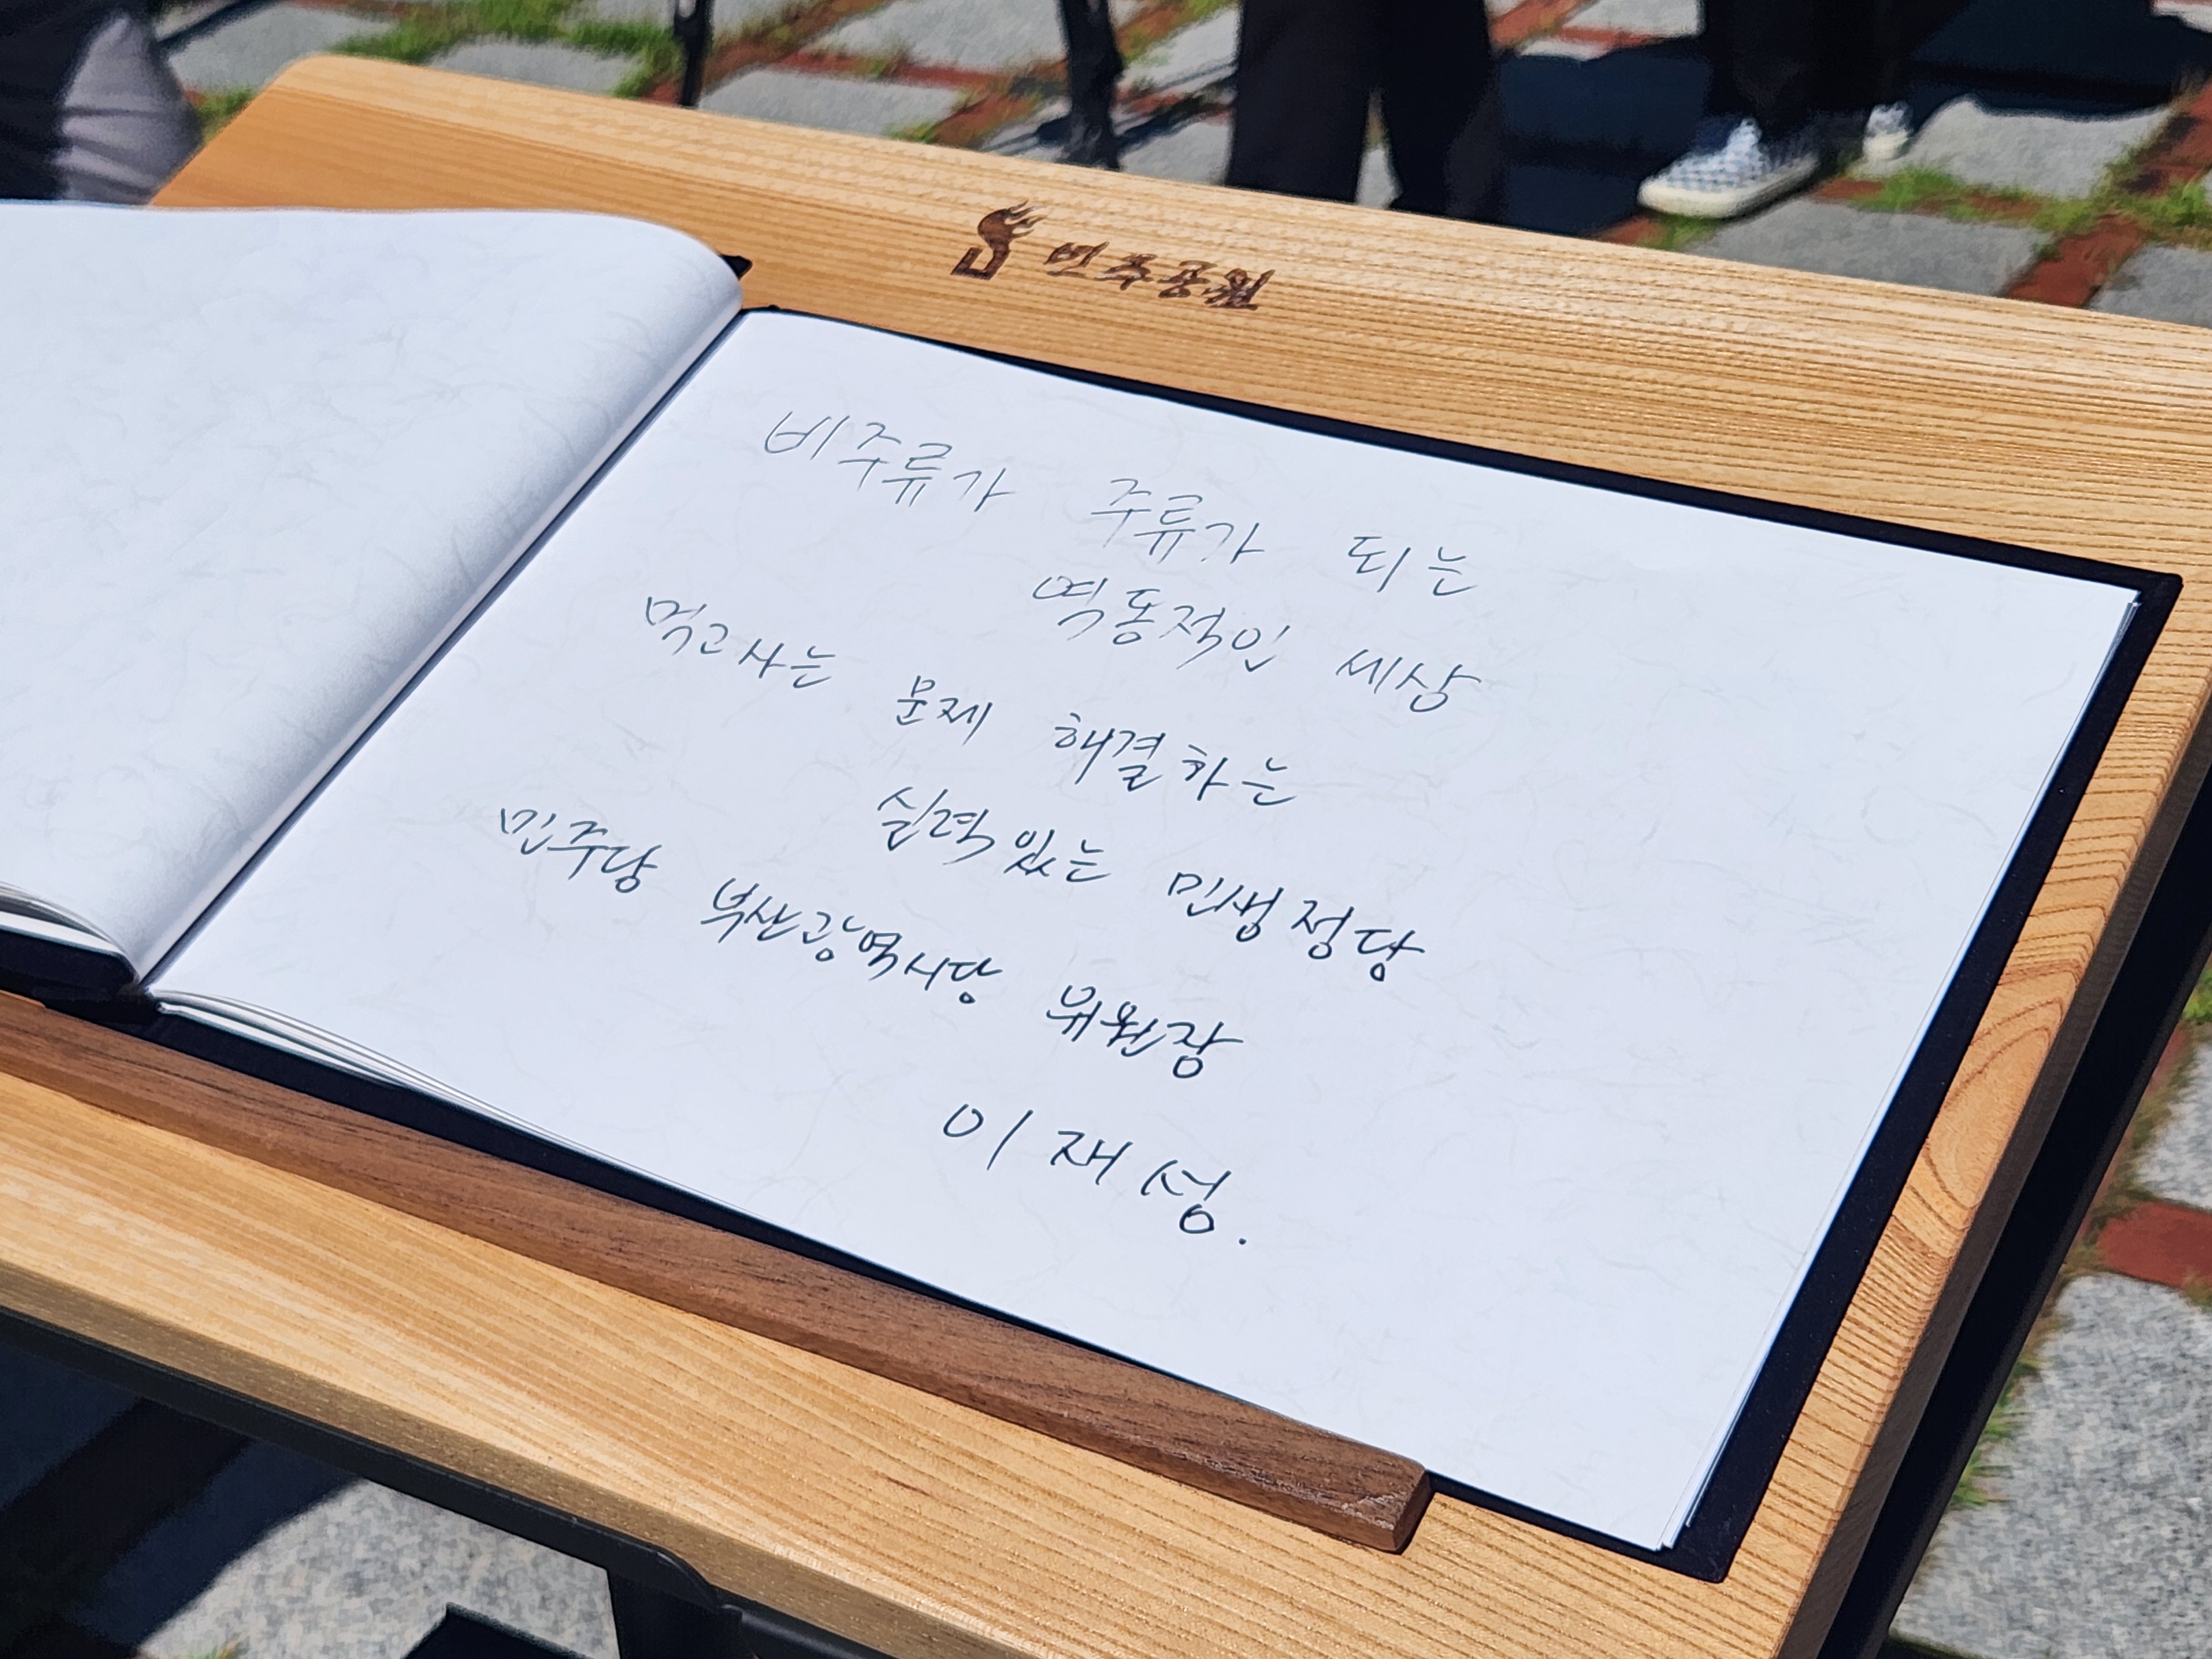 민주공원
비주류가 주류가 되는
역동적인 세상
먹고사는 문제 해결하는
실력있는 민생정당
민주당 부산광역시당 위원장
이재성.